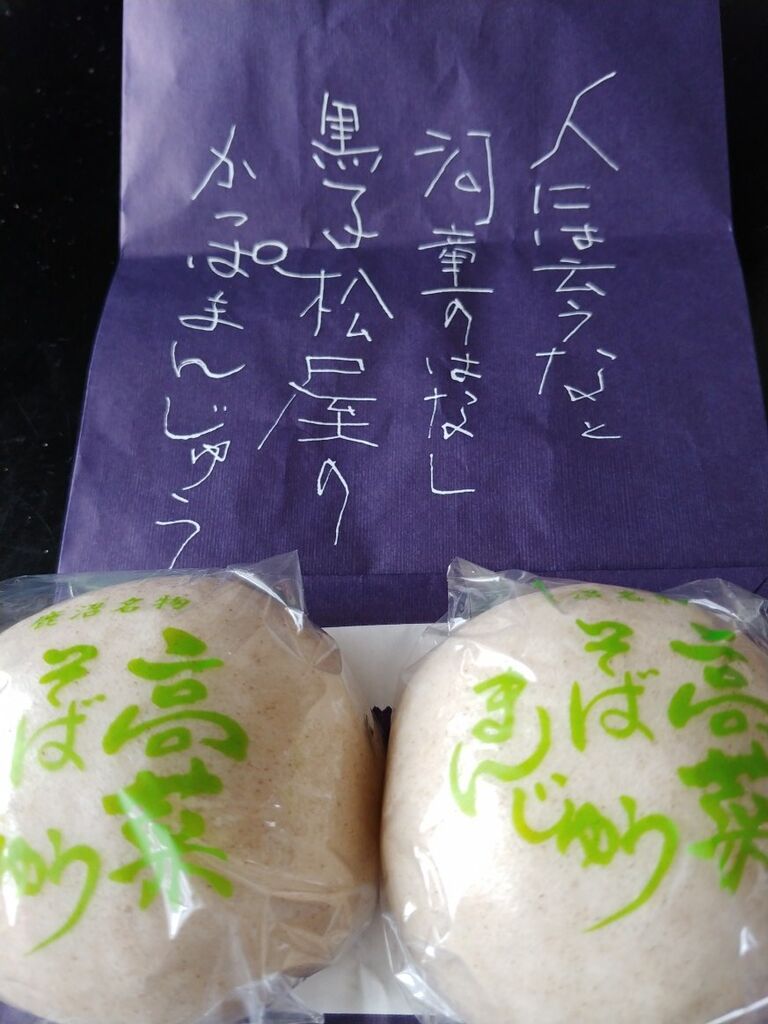 人には云うなと
河童のはなし
黒子松屋の
かっぱまんじゅう
鹿沼名物
高菜
そば
ゅう
高菜
そば
まんじゅう